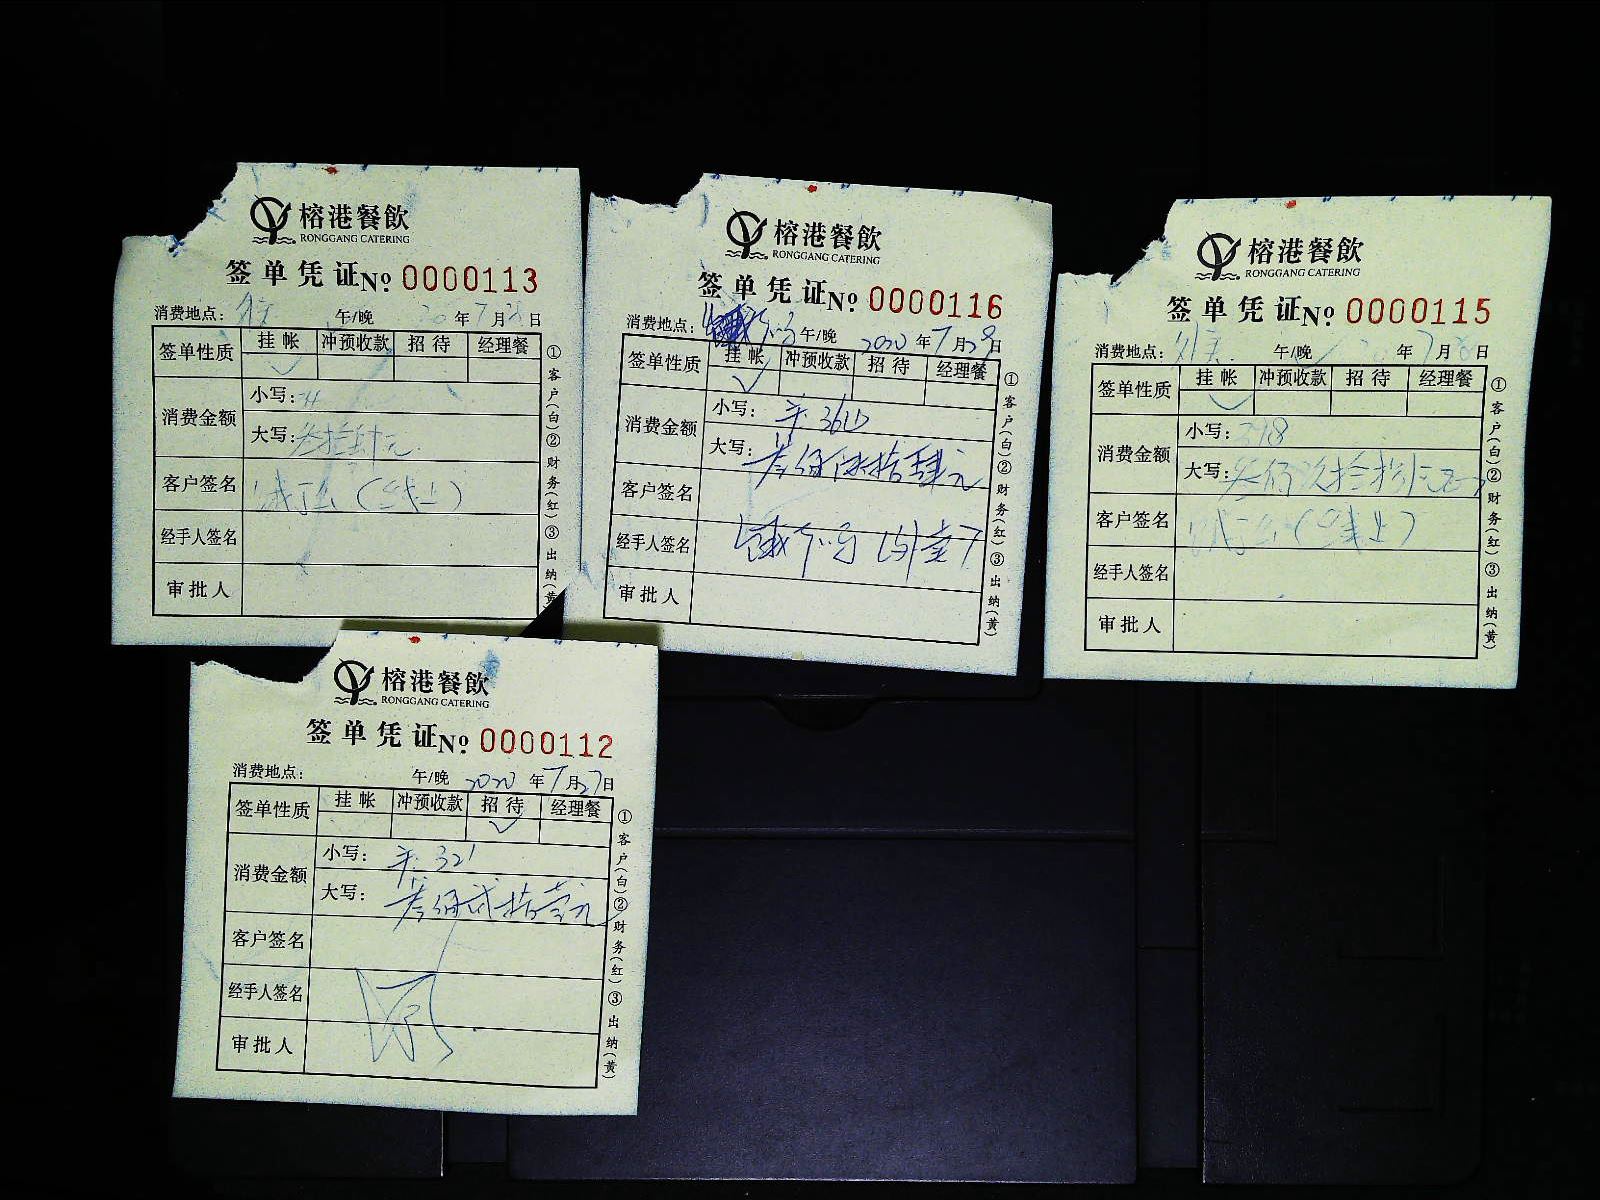 榕港餐飲
RONGGANG CATERING
签单凭证 No 0000113
消费地点: 午/晚 20 年 7 月 28 日
签单性质 挂帐 冲预收款 招待 经理餐
消费金额 小写:
大写:
客户签名 饿了么（线上）
经手人签名
审批人
①客户(白)②财务(红)③出纳(黄)
榕港餐飲
RONGGANG CATERING
签单凭证 No 0000116
消费地点: 午/晚 2020 年 7 月 28 日
签单性质 挂帐 冲预收款 招待 经理餐
消费金额 小写:
大写: 叁佰 拾肆元
客户签名
经手人签名
审批人
①客户(白)②财务(红)③出纳(黄)
榕港餐飲
RONGGANG CATERING
签单凭证 No 0000115
消费地点: 午/晚 20 年 7 月 28 日
签单性质 挂帐 冲预收款 招待 经理餐
消费金额 小写:
大写:
客户签名 饿了么（线上）
经手人签名
审批人
①客户(白)②财务(红)③出纳(黄)
榕港餐飲
RONGGANG CATERING
签单凭证 No 0000112
消费地点: 午/晚 2020 年 7 月 27 日
签单性质 挂帐 冲预收款 招待 经理餐
消费金额 小写: 321
大写: 叁佰贰拾壹元
客户签名
经手人签名
审批人
①客户(白)②财务(红)③出纳(黄)